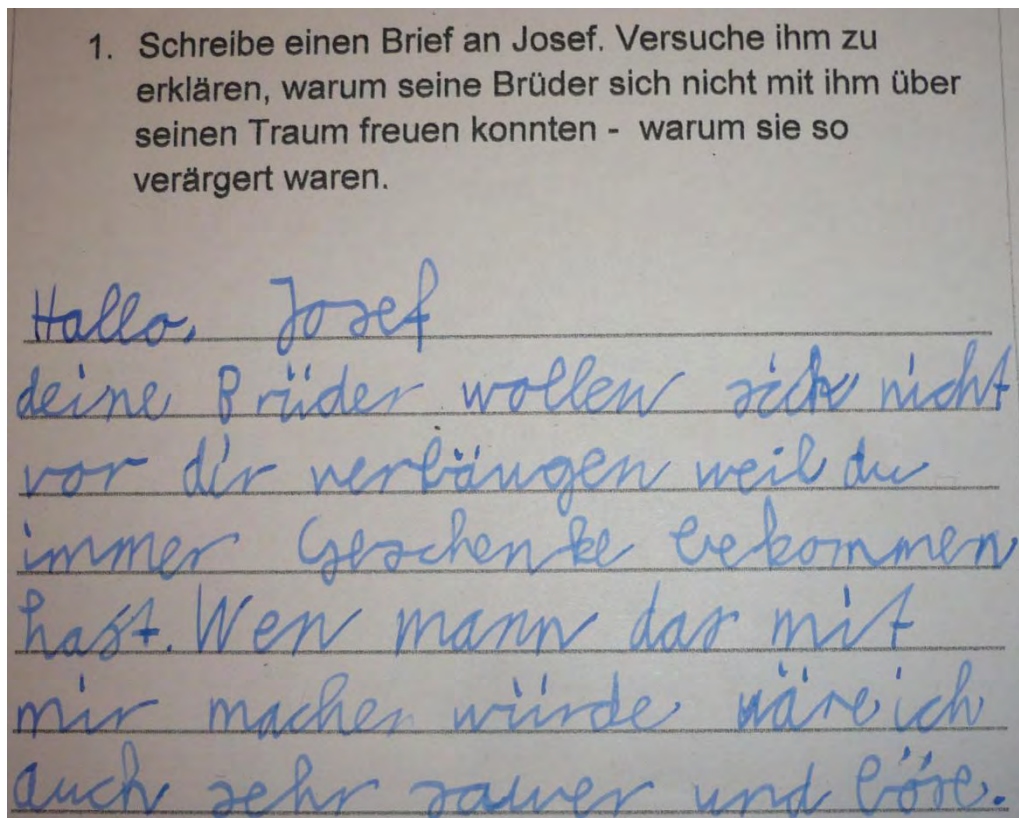 1. Schreibe einen Brief an Josef. Versuche ihm zu
erklären, warum seine Brüder sich nicht mit ihm über
seinen Traum freuen konnten - warum sie so
verärgert waren.
Hallo, Josef
deine Brüder wollen sich nicht
vor dir verbäugen weil du
immer Geschenke bekommen
hast. Wen mann das mit
mir machen würde wäre ich
auch sehr sauer und böse.